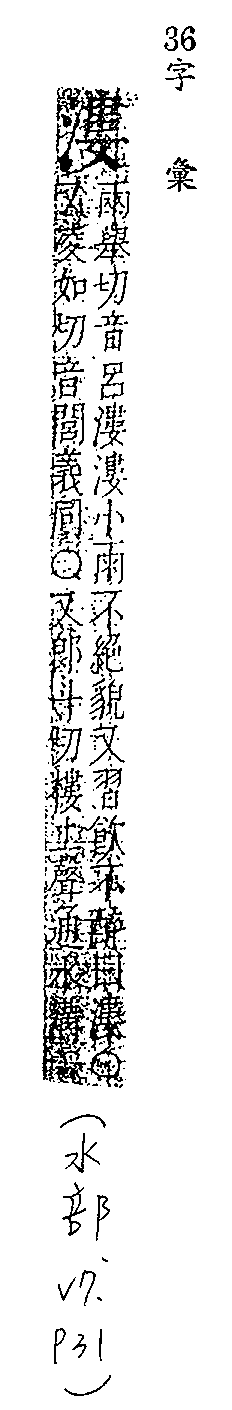 36字彙
漊
兩舉切音呂漊漊小雨不絕貌又習飲不醉曰漊○
又凌如切音閭義同○又郎斗切樓上聲通水溝
(水部
 P31)